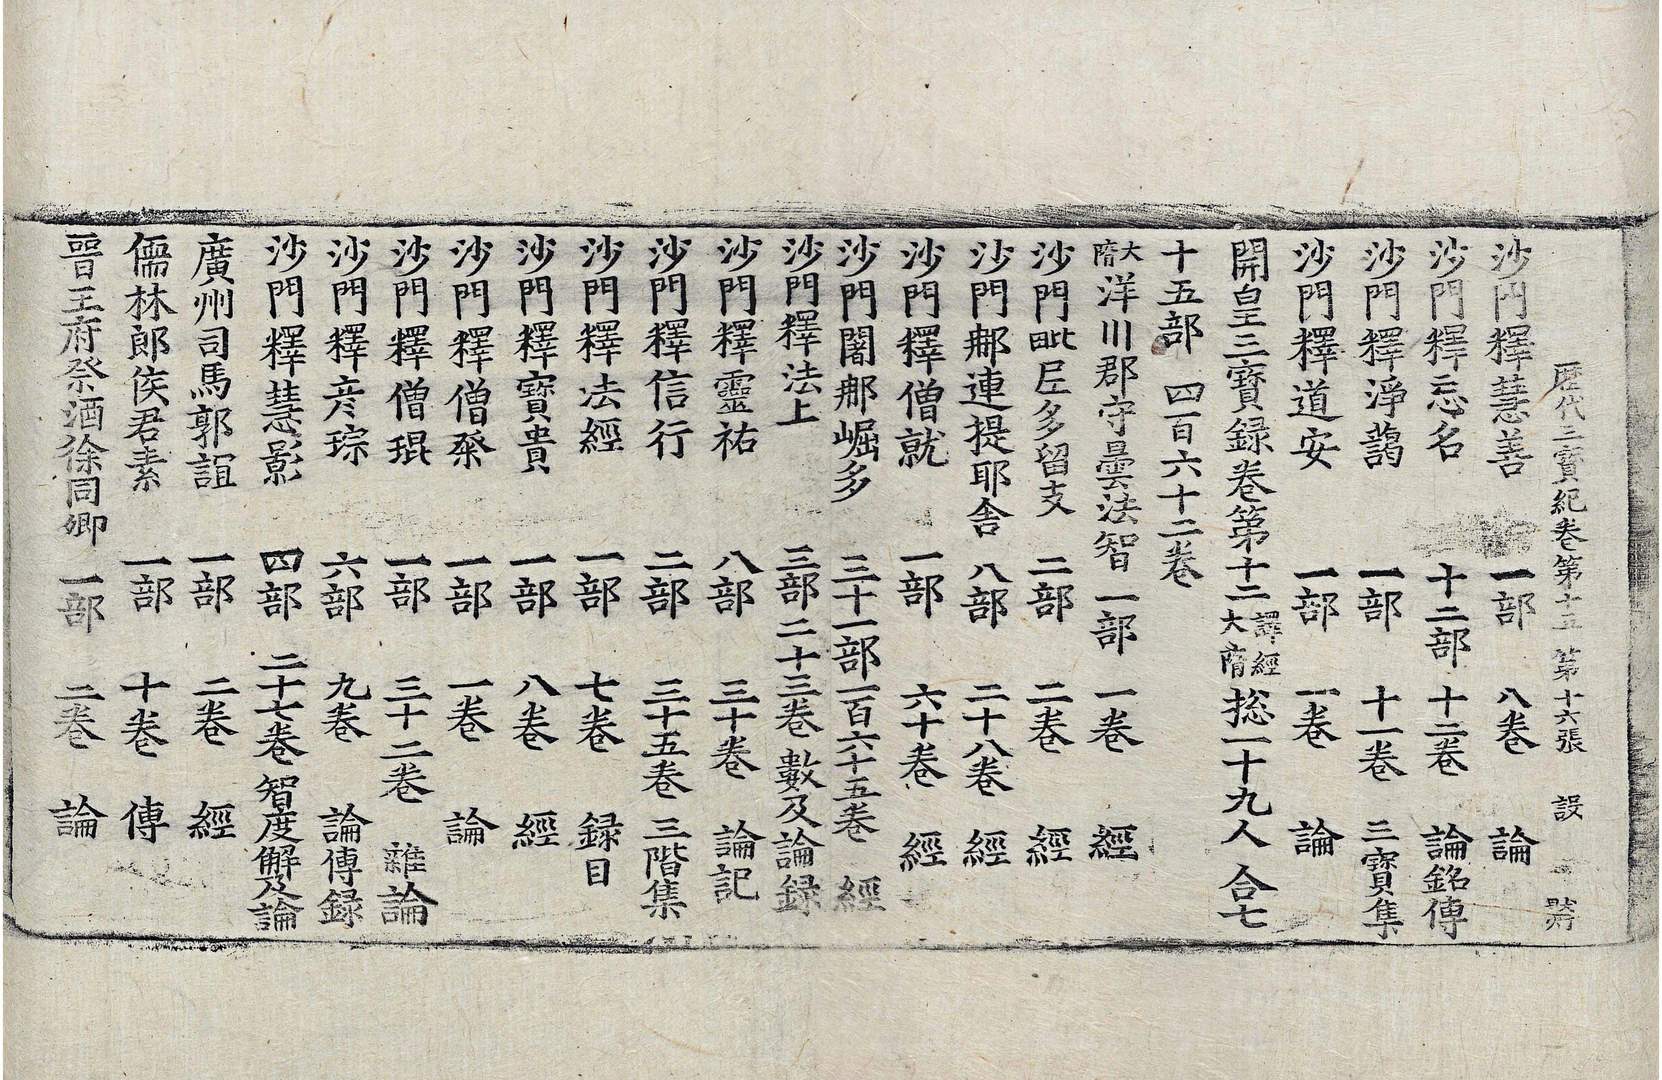 歷代三寶紀卷第十五 第十六張 設
沙門釋慧善 一部 八卷 論
沙門釋忘名 十二部 十二卷 論銘傳
沙門釋淨藹 一部 十一卷 三寶集
沙門釋道安 一部 一卷 論
開皇三寶録卷第十二 譯經大隋 揔一十九人 合七
十五部 四百六十二卷
大隋洋川郡守曇法智 一部 一卷 經
沙門毗尼多留支 二部 二卷 經
沙門郍連提耶舍 八部 二十八卷 經
沙門釋僧就 一部 六十卷 經
沙門闍郍崛多 三十一部 一百六十五卷 經
沙門釋法上 三部 二十三卷 數及論録
沙門釋靈祐 八部 三十卷 論記
沙門釋信行 二部 三十五卷 三階集
沙門釋法經 一部 七卷 録目
沙門釋寶貴 一部 八卷 經
沙門釋僧粲 一部 一卷 論
沙門釋僧琨 一部 三十二卷 雜論
沙門釋彥琮 六部 九卷 論傳録
沙門釋慧影 四部 二十七卷 智度解及論
廣州司馬郭誼 一部 二卷 經
儒林郎侯君素 一部 十卷 傳
晉王府祭酒徐同卿 一部 二卷 論